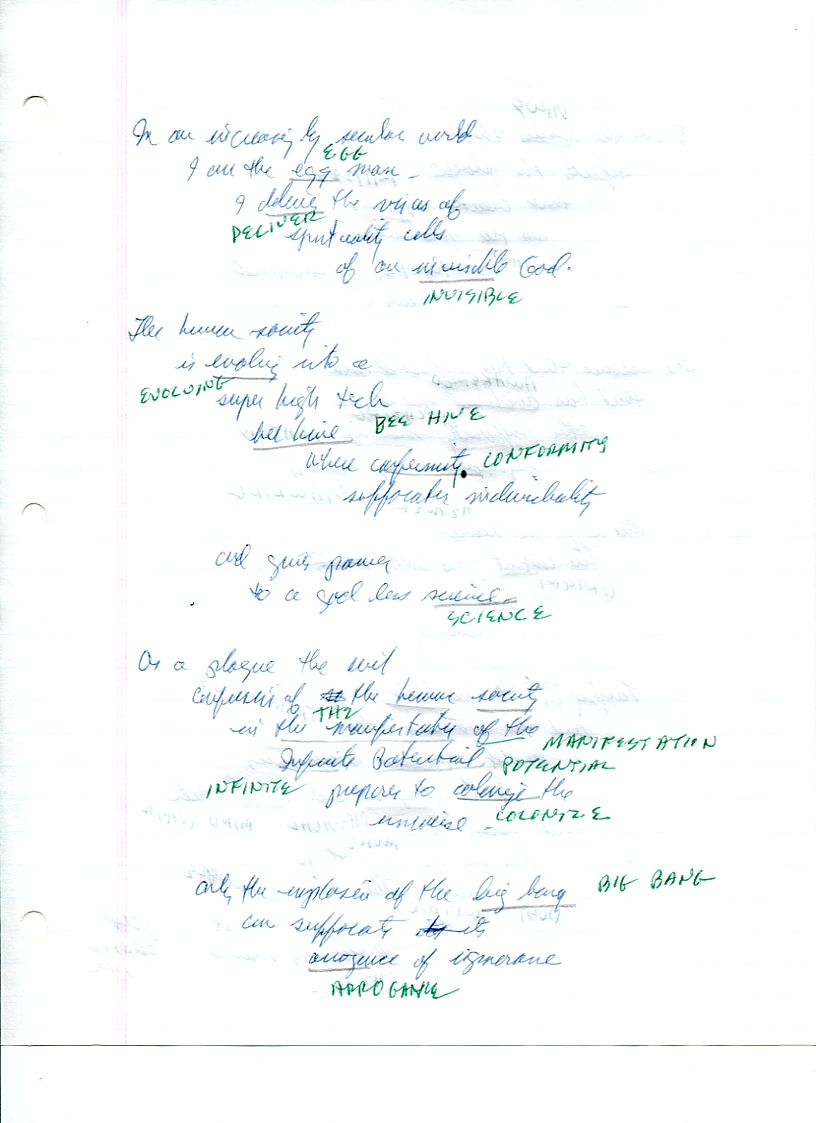 In an increasingly secular world
EGG
I am the egg man -
I deliver the voices of
DELIVER
spirituality cells
of an invisible God.
INVISIBLE
The human society
is evolving into a
EVOLVING
super high tech
BEE HIVE
bee hive
where conformity CONFORMITY
suffocates individuality
and gives power
to a god less science
SCIENCE
As a plague the evil
of the human society
THE
in the manifestation of the
MANIFESTATION
Infinite Potential POTENTIAL
INFINITE prepares to colonize the
universe - COLONIZE
only the implosion of the big bang BIG BANG
can suffocate its
arrogance of ignorance
ARROGANCE